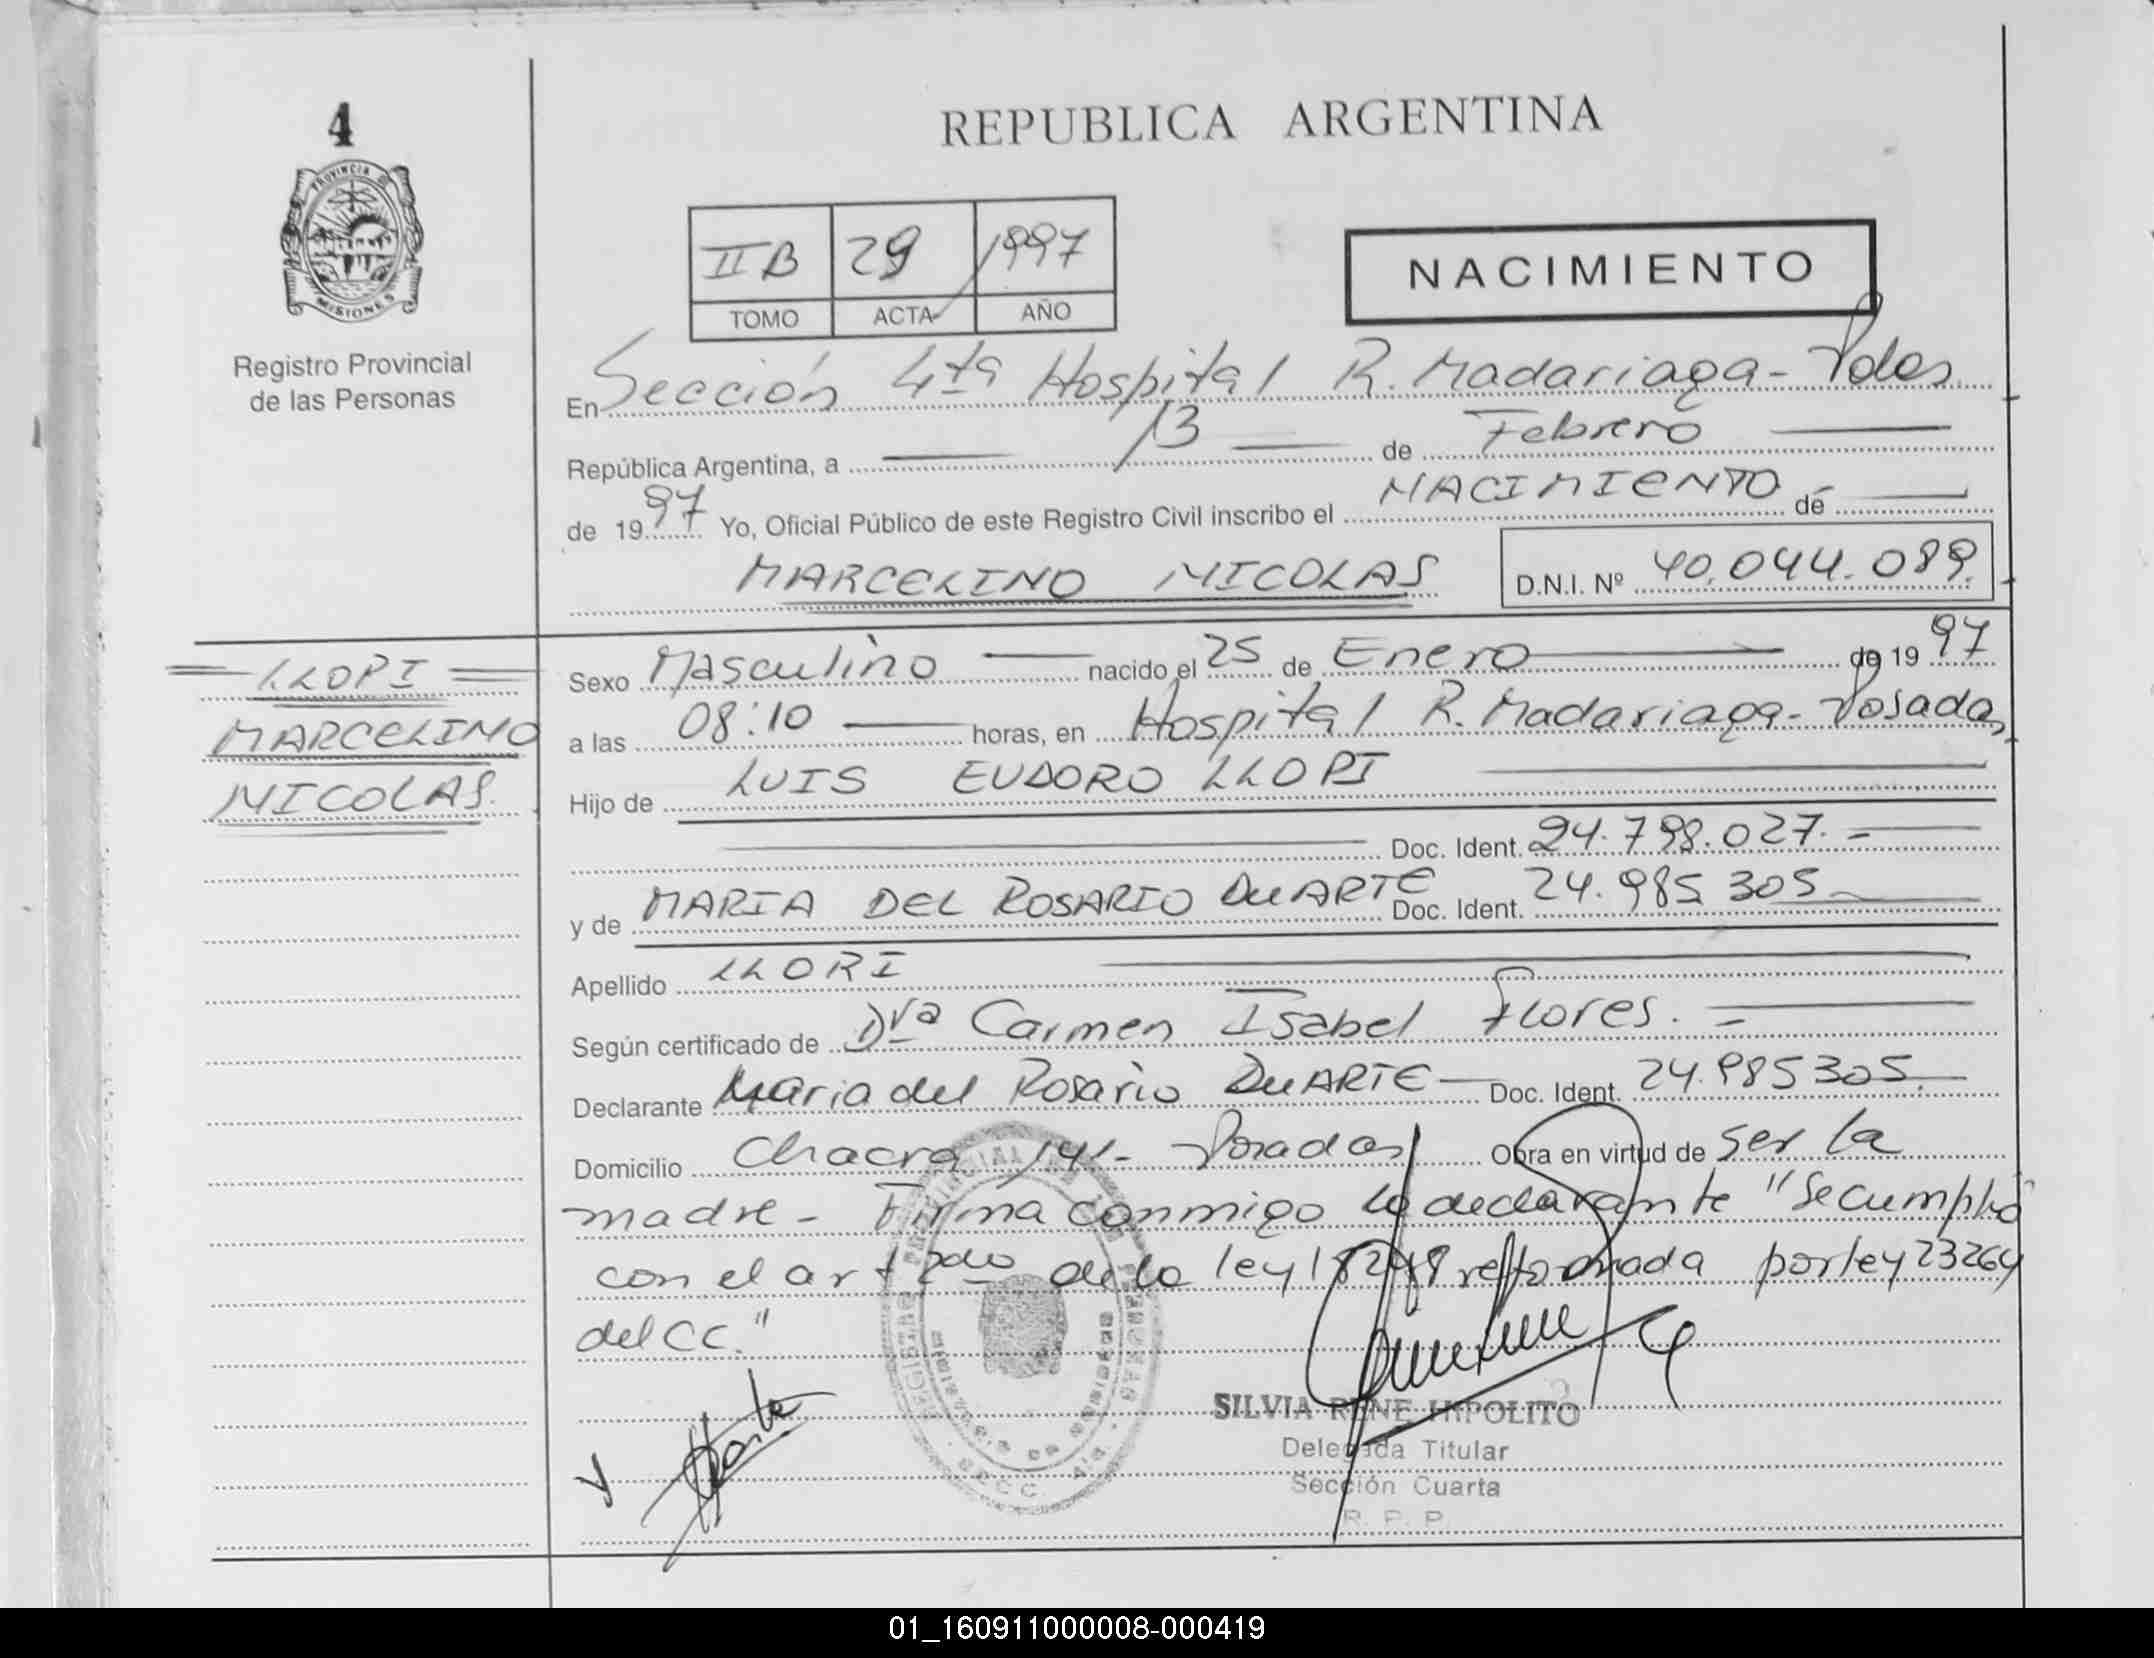 4
PROVINCIA DE
MISIONES
Registro Provincial
de las Personas
REPUBLICA ARGENTINA
II B 29 1997
TOMO ACTA AÑO
NACIMIENTO
En Sección 4ta Hospital R. Madariaga - Pdas
República Argentina, a 13 de Febrero
de 1997 Yo, Oficial Público de este Registro Civil inscribo el NACIMIENTO de
MARCELINO NICOLAS D.N.I. Nº 40.044.089.
LLOPI
MARCELINO
NICOLAS.
Sexo Masculino nacido el 25 de Enero de 1997
a las 08:10 horas, en Hospital R. Madariaga - Posadas
Hijo de LUIS EUDORO LLOPI
Doc. Ident. 24.798.027.-
y de MARIA DEL ROSARIO DUARTE Doc. Ident. 24.985305
Apellido LLOPI
Según certificado de Dra Carmen Isabel Flores. -
Declarante Maria del Rosario DUARTE Doc. Ident. 24.985305.
Domicilio Chacra 141 - Posadas Obra en virtud de ser la
madre - Firma conmigo la declarante "Se cumplió
con el art 2do de la ley 18248 reformada por ley 23264
del CC."
SILVIA RENE HIPOLITO
Delegada Titular
Sección Cuarta
R. P. P.
01_160911000008-000419